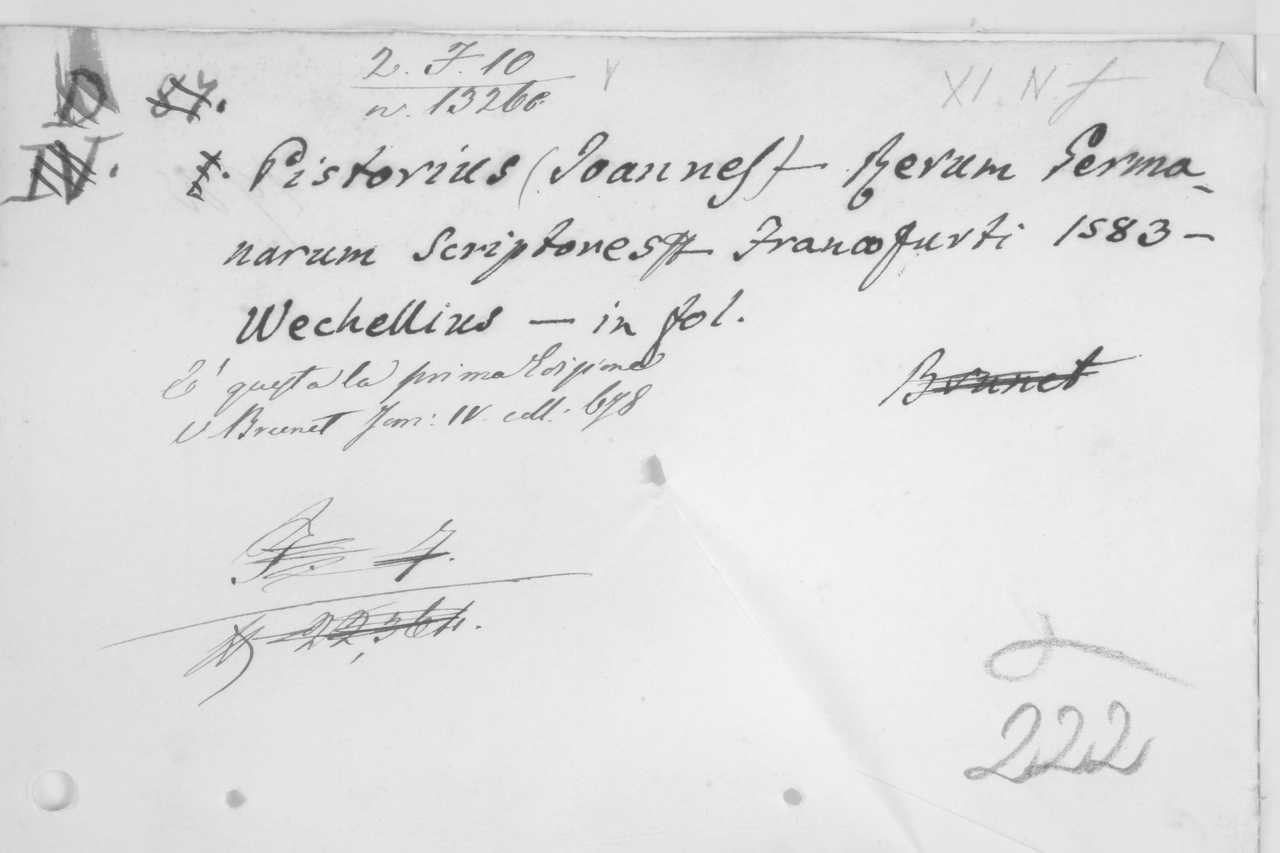 2. F. 10
n. 13266
XI. N. f
D 87.
IV. Pistorius (Joannes) Rerum Germa-
narum Scriptores Francofurti 1583 -
Wechellius — in fol.
E' questa la prima Edizione
V Brunet Tom: IV. coll. 678
Brunet
7.
22,364.
222